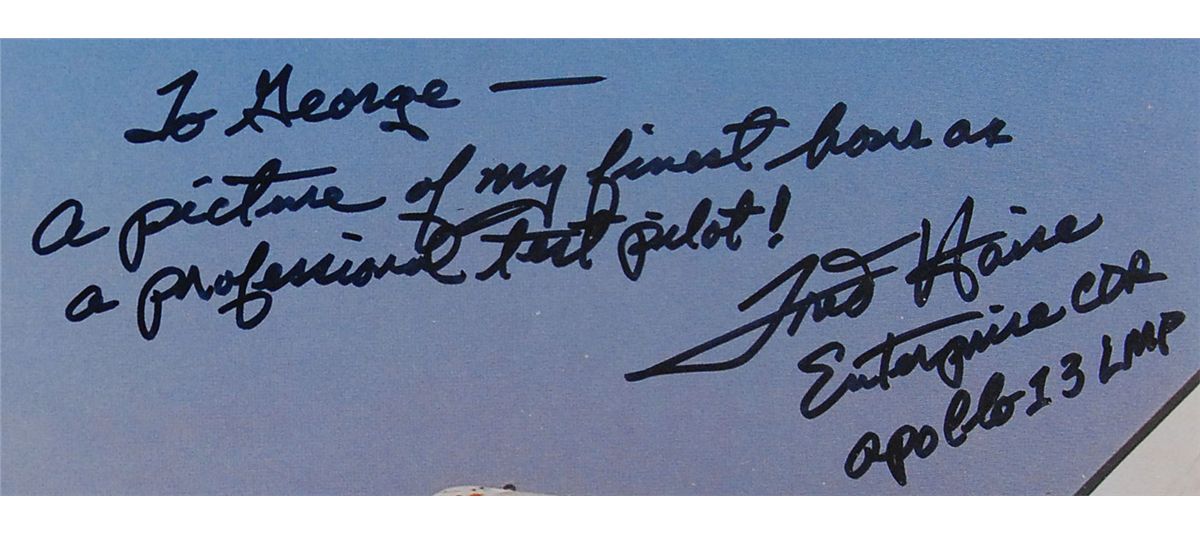 To George —
a picture of my finest hour as
a professional test pilot!
Fred Haise
Enterprise CDR
Apollo 13 LMP